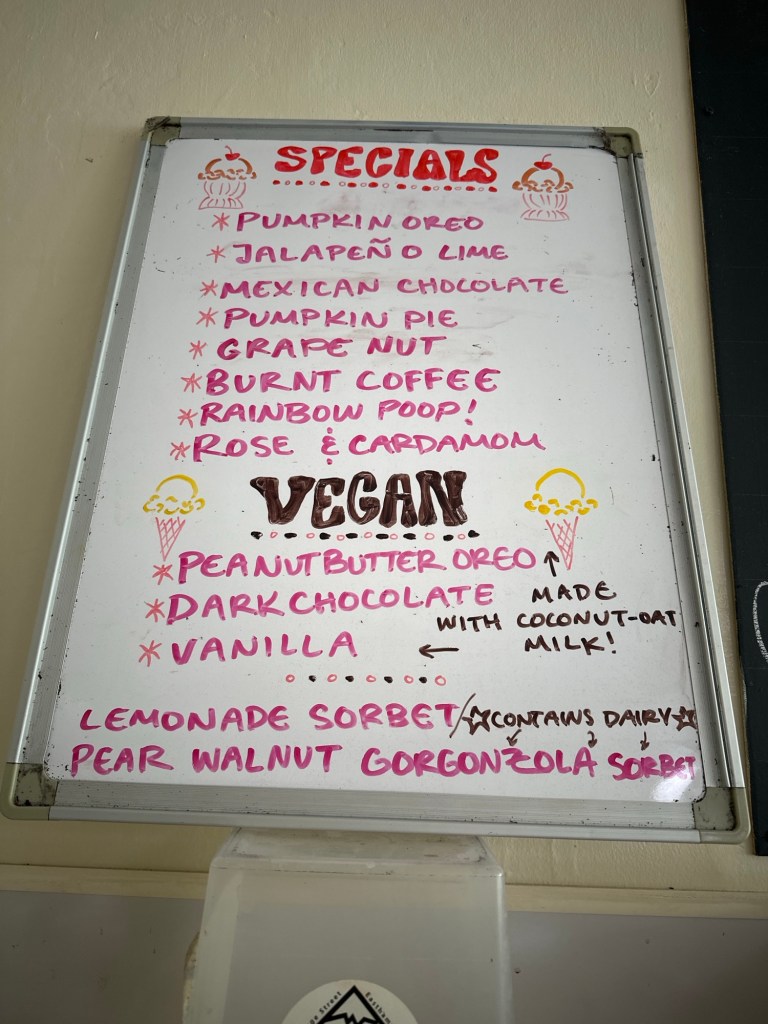 SPECIALS
* PUMPKIN OREO
* JALAPEÑO LIME
* MEXICAN CHOCOLATE
* PUMPKIN PIE
* GRAPE NUT
* BURNT COFFEE
* RAINBOW POOP!
* ROSE & CARDAMOM
VEGAN
* PEANUT BUTTER OREO ↑
* DARK CHOCOLATE
* VANILLA ←
MADE
WITH COCONUT-OAT
MILK!
LEMONADE SORBET/☆CONTAINS DAIRY☆
PEAR WALNUT GORGONZOLA SORBET
Street
Eastham